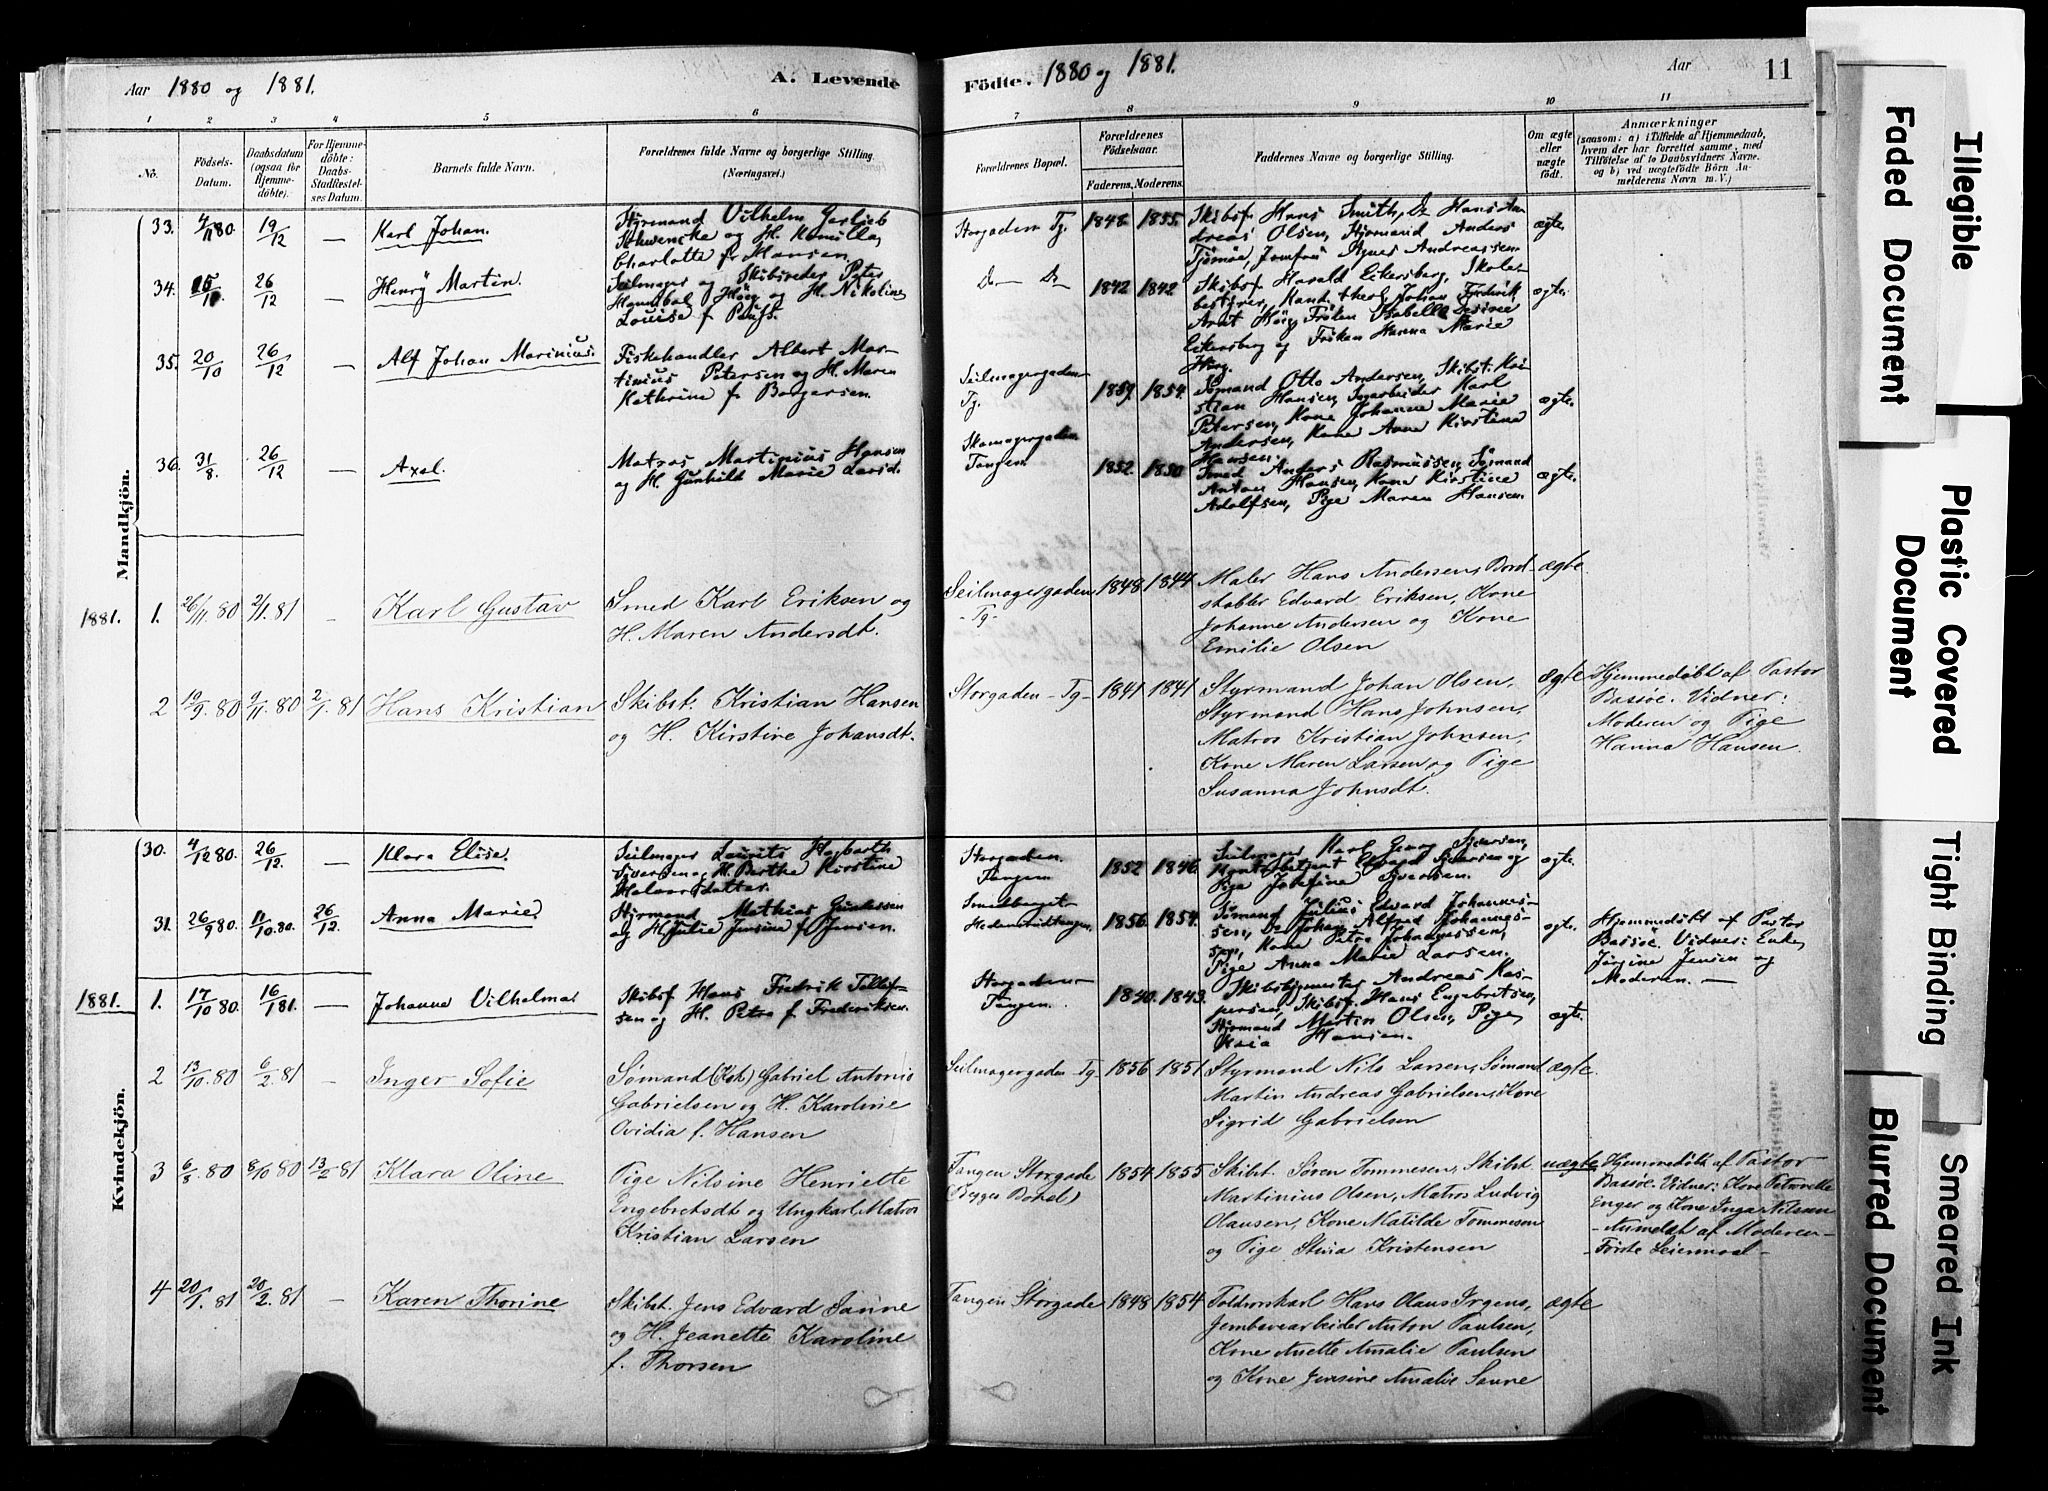 Aar 1880 og 1881.
A. Levende
Födte. 1880 og 1881.
Aar 11
1 2 3 4 5 6 7 8 9 10 11
No.
Födsels-
Datum.
Daabsdatum
(ogsaa for
Hjemme-
döbte).
For Hjemme-
döbte:
Daabs-
Stadfæstel-
ses Datum.
Barnets fulde Navn.
Forældrenes fulde Navne og borgerlige Stilling.
(Næringsvei.)
Forældrenes Bopæl.
Forældrenes
Födselsaar.
Faderens. Moderens.
Faddernes Navne og borgerlige Stilling.
Om ægte
eller
uægte
födt.
Anmærkninger
(saasom: a) i Tilfælde af Hjemmedaab,
hvem der har forrettet samme, med
Tilföielse af to Daabsvidners Navne.
og b) ved uægtefödte Börn An-
melderens Navn m. V.)
Mandkjön.
33. 4/11 80 19/12 — Karl Johan.
Styrmand Vilhelm Garlieb
Schwencke og H. Kamilla
Charlotte f. Hansen.
Storgaden Tg. 1848 1855.
Skibsf. Hans Smith, Do Hans An-
dreas Olsen, Styrmand Anders
Tjömöe, Jomfru Agnes Andreassen.
ægte.
34. 15/11 26/12 — Henrÿ Martin.
Seilmager og Skibsreder Peter
Hannibal Höeg og H. Nikoline
Louise f. Paufs.
Do — Do — 1842 1842
Skibsf. Harald Eikersberg, Skole-
bestyrer, Kand. theol. Johan Fredrik
Arnt Höeg, Fröken Isabella Lovise
Eikersberg og Fröken Hanna Marie
Höeg.
ægte.
35. 20/10 26/12 — Alf Johan Marinius.
Fiskehandler Albert Mar-
tinius Petersen og H. Maren
Kathrine f. Borgersen.
Seilmagergaden
Tg. 1859. 1854.
Sömand Otto Andersen, Skibst. Kri-
stian Hansen, Jnarbeider Karl
Petersen, Kone Johanne Marie
Andersen, Kone Anne Kirstine
Hansen.
ægte.
36. 31/8. 26/12 — Axel.
Matros Martinius Hansen
og H. Gunhild Marie Larsd.
Skomagergaden
Tangen. 1852. 1850
Smed Anders Rasmussen, Sömand
Anton Hansen, Kone Kirstine
Adolfsen, Pige Maren Hansen.
ægte.
1881. 1. 26/11. 80 2/1. 81 - Karl Gustav
Smed Karl Eriksen og
H. Maren Andersdt.
Seilmagergaden
- Tg - 1848 1844
Maler Hans Andersen, Bord-
stabler Edvard Eriksen, Kone
Johanne Andersen og Kone
Emilie Olsen
ægte
2 19/9. 80 9/11. 80 2/1. 81 Hans Kristian
Skibst. Kristian Hansen
og H. Kirstine Johansdt.
Storgaden - Tg - 1841 1841
Styrmand Johan Olsen,
Styrmand Hans Johnsen,
Matros Kristian Johnsen,
Kone Maren Larsen og Pige
Susanna Johnsdt.
ægte
Hjemmedøbt af Pastor
Bassöe. Vidner:
Moderen og Pige
Hanna Hansen.
Kvindekjön.
30. 4/12 80. 26/12. — Klara Elise.
Seilmager Laurits Hagbarth
Iversen og H. Berthe Kirstine
Halvorsdatter.
Storgaden.
Tangen. 1852 1846.
Seilmager Karl Georg Iversen,
Kontorbetjent Edvard Iversen og
Pige Josefine Iversen.
ægte.
31. 26/9 80. 11/10. 80. 26/12. Anna Marie.
Styrmand Mathias
og H. Julie Jensine f. Jensen.
1856. 1854.
Sömand Julius Edvard Johannes-
sen, Do Johan Alfred Johannes-
sen, Kone Petra Johannessen,
Pige Anna Marie Larsen.
ægte.
Hjemmedöbt af Pastor
Bassöe. Vidner: Enke
Jörgine Jensen og
Moderen. —
1881. 1. 17/10 80. 16/1 81. — Johanne Vilhelma.
Skibsf. Hans Fredrik Tollef-
sen og H. Petra f. Frederiksen.
Storgaden
Tangen. 1840. 1843.
Skibstömmester Andreas Kas-
persen, Skibsf. Hans Engebretsen,
Styrmand Martin Olsen, Pige
Maia Hansen.
ægte.
2 13/10. 80 6/2. 81 — Inger Sofie
Sømand (Kok) Gabriel Antonio
Gabrielsen og H. Karoline
Ovidia f. Hansen
Seilmagergaden Tg - 1856 1851
Styrmand Nils Larsen, Sømand
Martin Andreas Gabrielsen, Kone
Sigrid Gabrielsen
ægte.
3 6/8. 80 8/10 80 13/2 81 Klara Oline
Pige Nilsine Henriette
Engebretsdt og Ungkarl Matros
Kristian Larsen
Tangen Storgade
(Bygges Bohol) 1854 1855
Skibst. Søren Tommesen, Skibst.
Martinius Olsen, Matros Ludvig
Olausen, Kone Matilde Tommesen
og Pige Stina Kristensen
uægte
Hjemmedøbt af Pastor
Bassöe. Vidner: Kone Petronelle
Enger og Kone Inga Nilsen
- Anmeldt af Moderen -
- Første Leiermaal -
4 20/1. 81 20/2. 81 — Karen Thorine
Skibst. Jens Edvard Sanne
og H. Jeanette Karoline
f. Thorsen
Tangen Storgade 1848 1854
Toldrorskarl Hans Olaus Irgens,
Jernbanearbeider Anton Paulsen,
Kone Anette Amalie Paulsen
og Kone Jensine Amalie Sanne
ægte
Illegible
Faded Document
Plastic Covered
Document
Tight Binding
Smeared Ink
Blurred Document